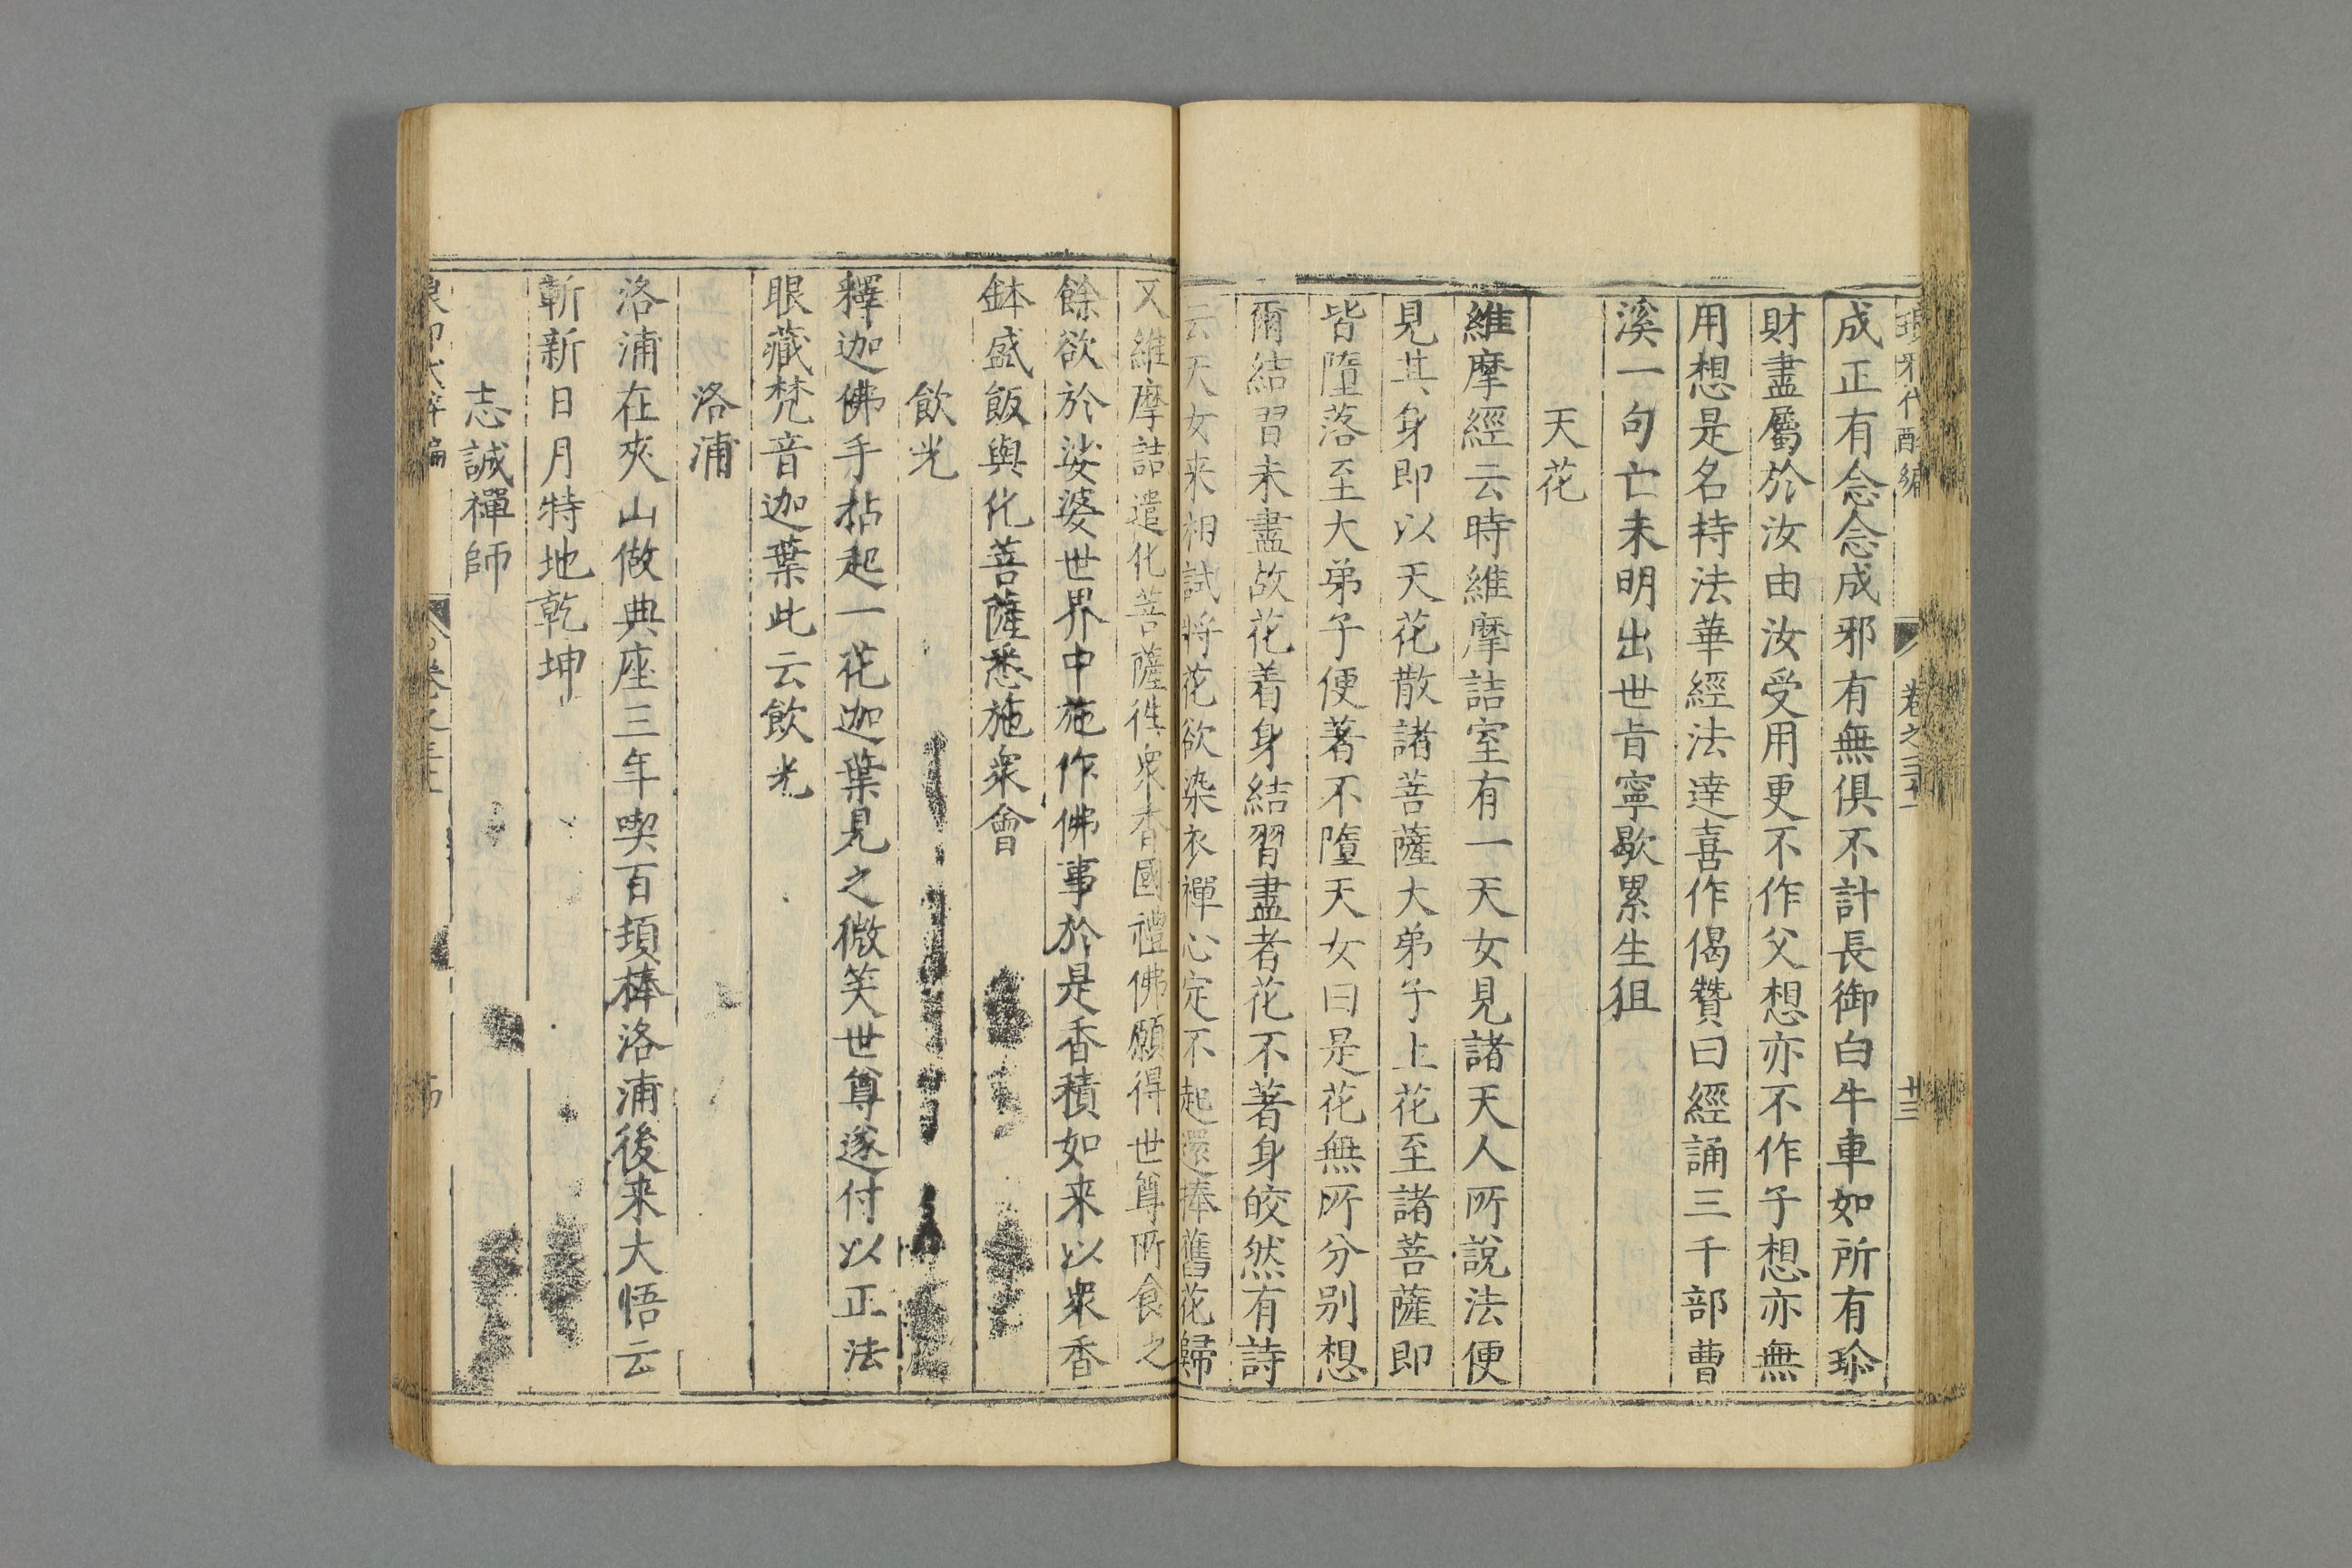 瑯琊代醉編 卷之三十二 廿三
成正有念念成邪有無俱不計長御白牛車如所有珎
財盡屬於汝由汝受用更不作父想亦不作子想亦無
用想是名持法華經法達喜作偈贊曰經誦三千部曹
溪一句亡未明出世旨寧歇累生狂
天花
維摩經云時維摩詰室有一天女見諸天人所說法便
見其身即以天花散諸菩薩大弟子上花至諸菩薩即
皆墮落至大弟子便著不墮天女曰是花無所分別想
爾結習未盡故花着身結習盡者花不著身皎然有詩
云天女来相試將花欲染衣禪心定不起還捧舊花歸
又維摩詰遣化菩薩徃衆香國禮佛願得世尊所食之
餘欲於娑婆世界中施作佛事於是香積如来以衆香
鉢盛飯與化菩薩悉施衆會
飲光
釋迦佛手拈起一花迦葉見之微笑世尊遂付以正法
眼藏梵音迦葉此云飲光
洛浦
洛浦在夾山做典座三年喫百頓棒洛浦後来大悟云
斬新日月特地乾坤
志誠禪師